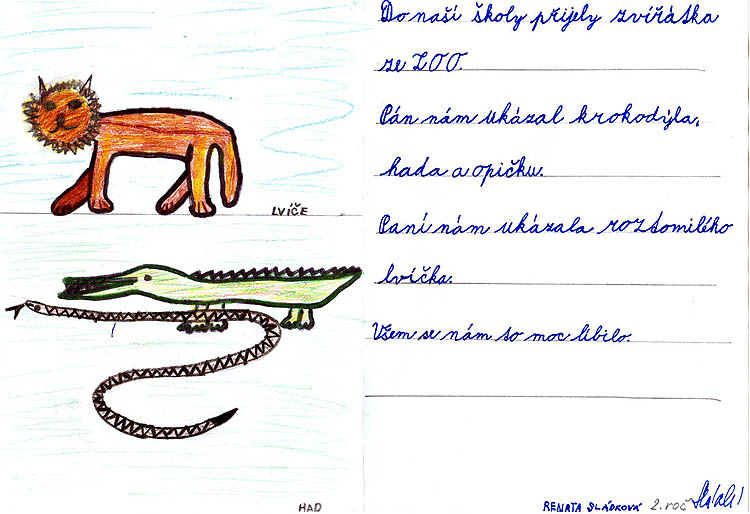 Do naší školy přijely zvířátka
ze ZOO.
Pán nám ukázal krokodýla,
hada a opičku.
Paní nám ukázala roztomilého
lvíčka.
Všem se nám to moc líbilo.
LVÍČE
HAD
RENATA SLÁDKOVÁ 2. roč